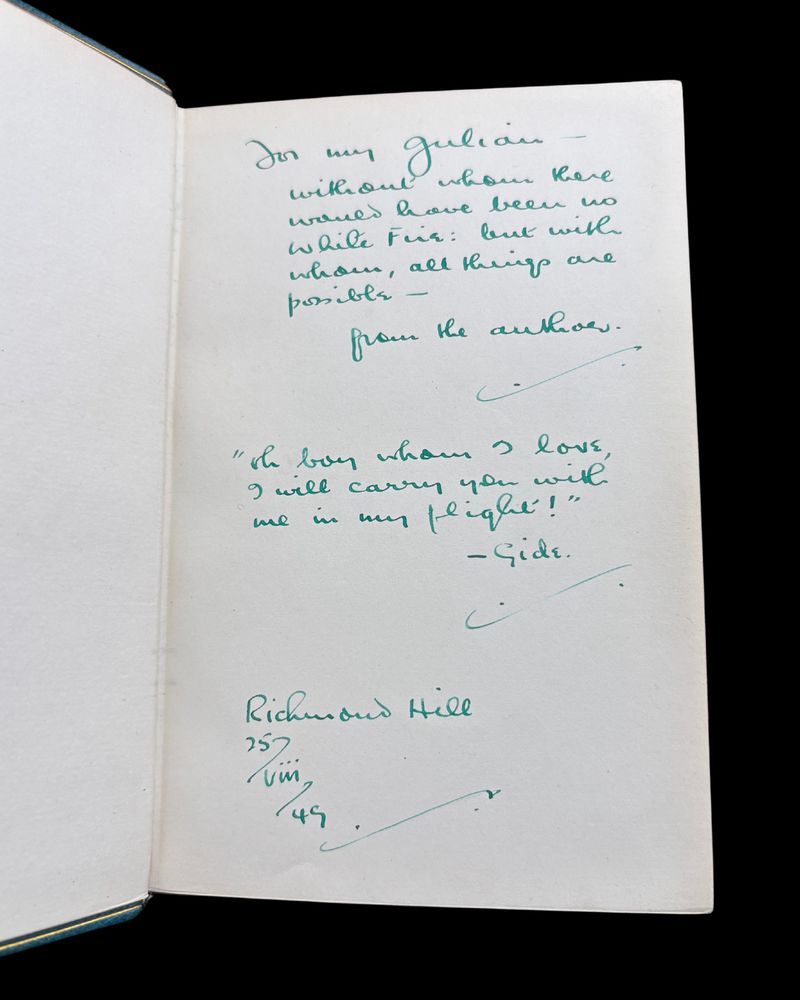 For my Julian —
without whom there
would have been no
White Fire: but with
whom, all things are
possible —
from the author.
"Oh boy whom I love,
I will carry you with
me in my flight!"
— Gide.
Richmond Hill
25
/viii
/49